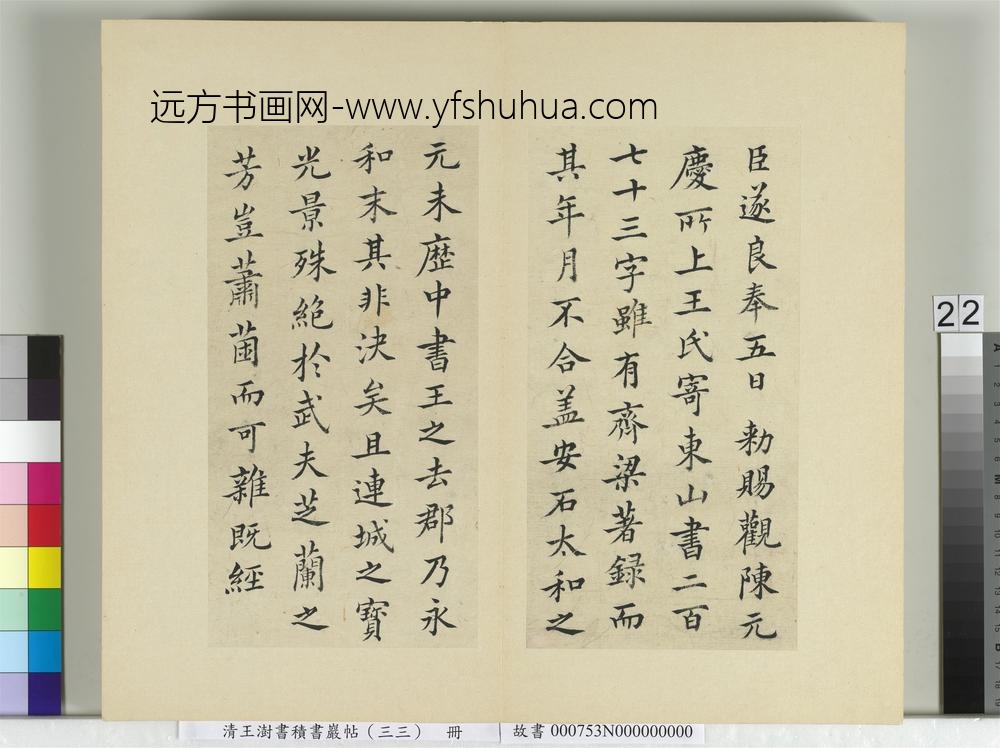 远方书画网-www.yfshuhua.com
臣遂良奉五日 勅賜觀陳元
慶所上王氏寄東山書二百
七十三字雖有齊梁著録而
其年月不合盖安石太和之
元未歷中書王之去郡乃永
和末其非決矣且連城之寳
光景殊絕於武夫芝蘭之
芳豈蕭茵而可雜既經
22
清王澍書積書巖帖(三三) 冊 故書 000753N000000000